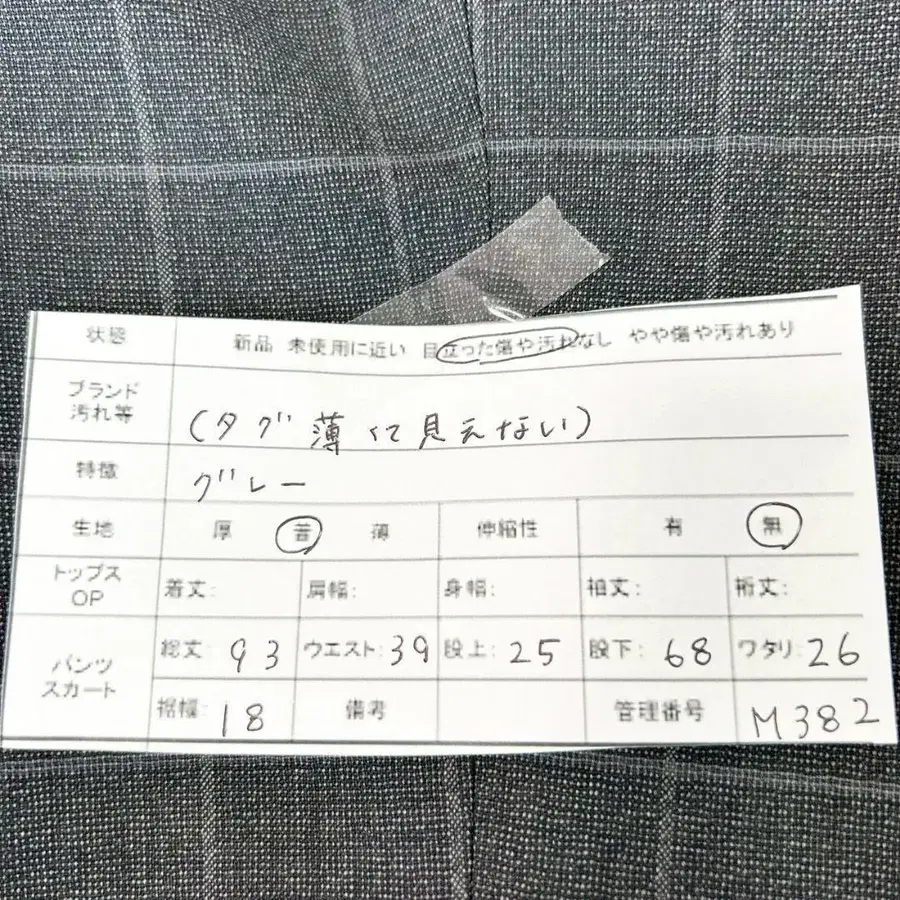 状態 新品 未使用に近い 目立った傷や汚れなし やや傷や汚れあり
ブランド
汚れ等 (タグ薄くて見えない)
特徴 グレー
生地 厚 普 薄 伸縮性 有 無
トップス
OP 着丈: 肩幅: 身幅: 袖丈: 裄丈:
パンツ
スカート 総丈: 93 ウエスト: 39 股上: 25 股下: 68 ワタリ: 26
裾幅: 18 備考 管理番号 M382